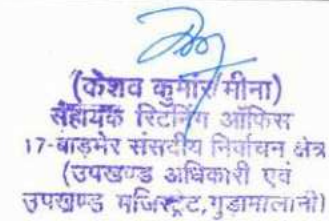 (केशव कुमार मीना)
सहायक रिटर्निंग ऑफिस
17-बाड़मेर संसदीय निर्वाचन क्षेत्र
(उपखण्ड अधिकारी एवं
उपखण्ड मजिस्ट्रेट,गुडामालानी)